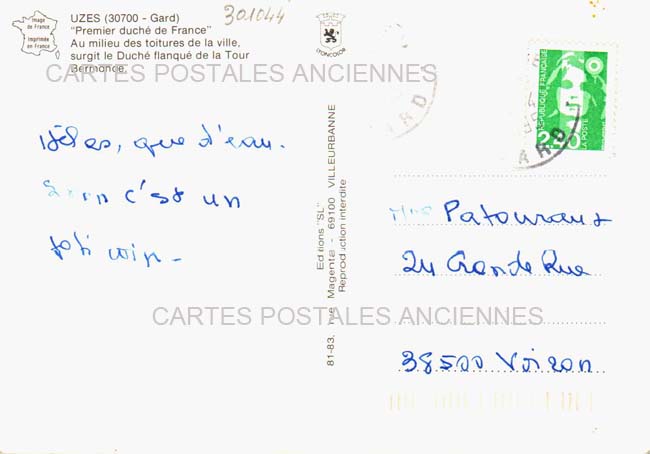 Image
de France
Imprimée
en France
UZES (30700 - Gard)
"Premier duché de France"
Au milieu des toitures de la ville,
surgit le Duché flanqué de la Tour
Bermonde.
301044
LYONCOLOR
CARTES POSTALES ANCIENNES
Hélas, que d'eau.
c'est un
joli coin -
Editions "SL"
81-83, rue Magenta - 69100 VILLEURBANNE
Reproduction interdite
ARD
ARD
REPUBLIQUE FRANÇAISE
LA POSTE
Mme
24 Grande Rue
CARTES POSTALES ANCIENNES
38500 Voiron